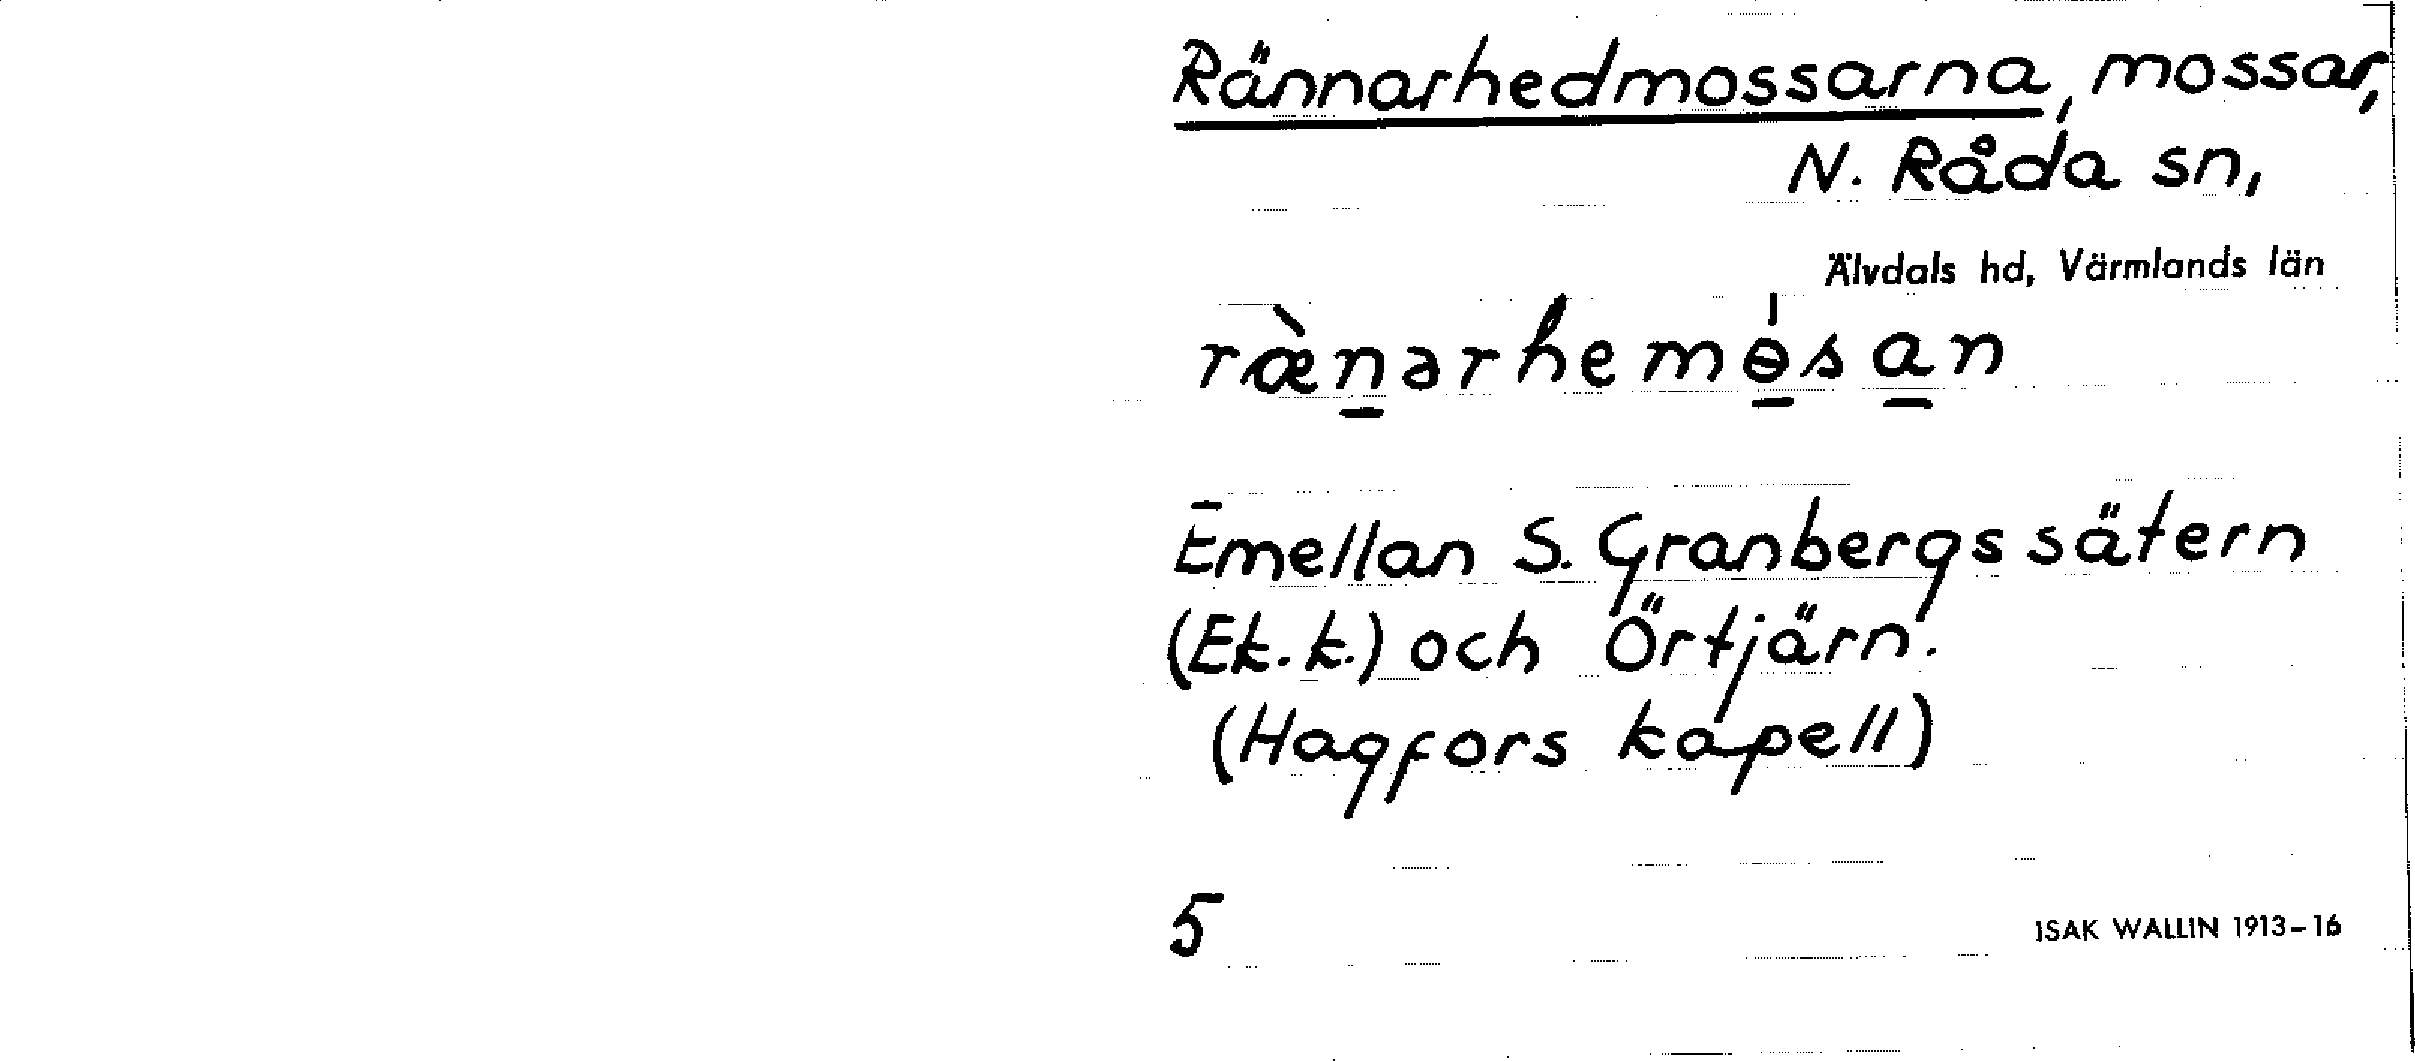 Rännarhedmossarna, mossar,
N. Råda sn,
Älvdals hd, Värmlands län
ræ̀n̲ərhemɵ̲̍sa̲n
Emellan S. Granbergssätern
(Ek. k.) och Örtjärn.
(Hagfors kapell)
5
ISAK WALLIN 1913–16